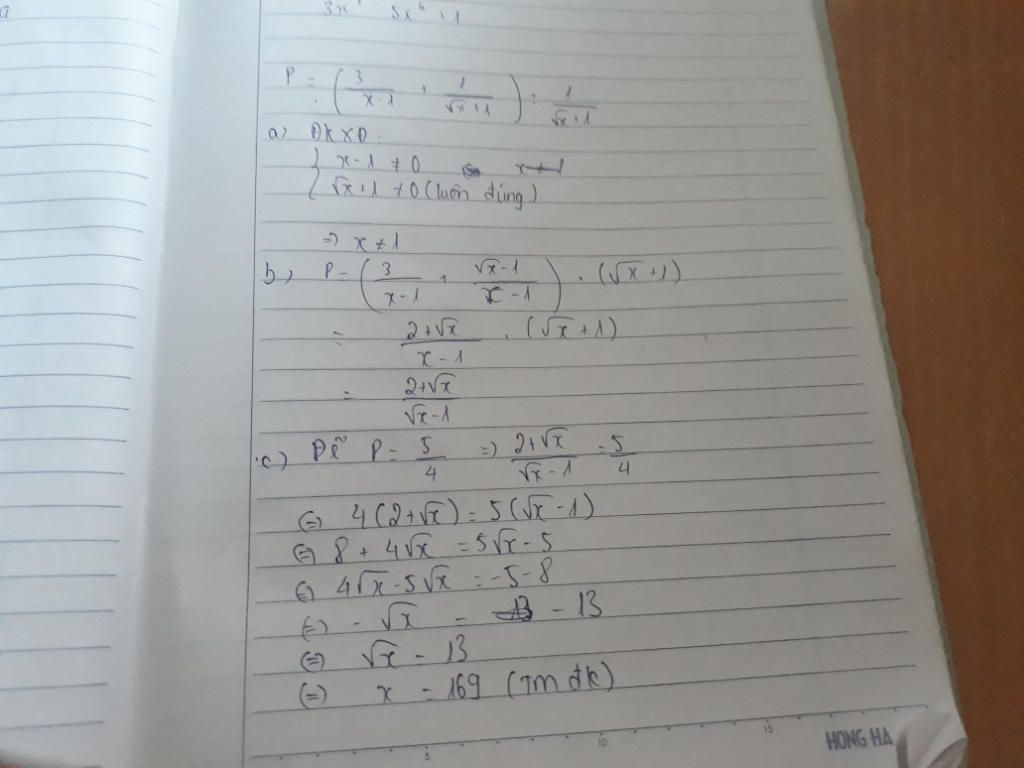 a
3x 5x⁶ + 1
P = (3/(x-1) + 1/(√x+1)) : 1/(√x+1)
a) ĐKXĐ:
{ x-1 ≠ 0
{ √x+1 ≠ 0 (luôn đúng)
=> x ≠ 1
b) P = (3/(x-1) + (√x-1)/(x-1)) . (√x+1)
= (2+√x)/(x-1) . (√x+1)
= (2+√x)/(√x-1)
c) Để P = 5/4 => (2+√x)/(√x-1) = 5/4
(=) 4(2+√x) = 5(√x-1)
(=) 8 + 4√x = 5√x - 5
(=) 4√x - 5√x = -5-8
(=) -√x = -13
(=) √x = 13
(=) x = 169 (TM đk)
5 10 15
HONG HA